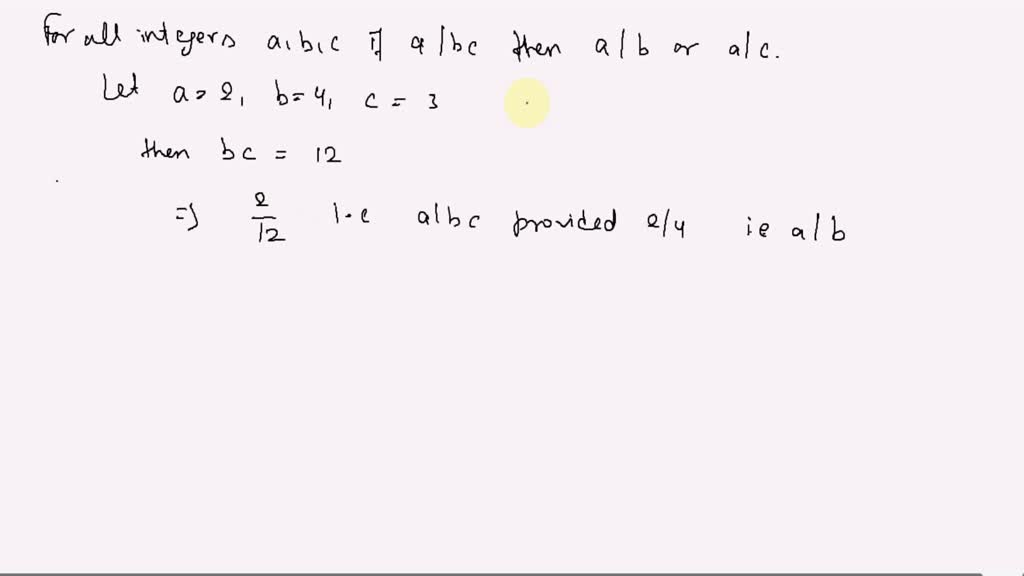 For all integers a, b, c if a/bc then a/b or a/c.
Let a = 2, b = 4, c = 3
then bc = 12
=> 2/12 i.e a/bc provided 2/4 ie a/b